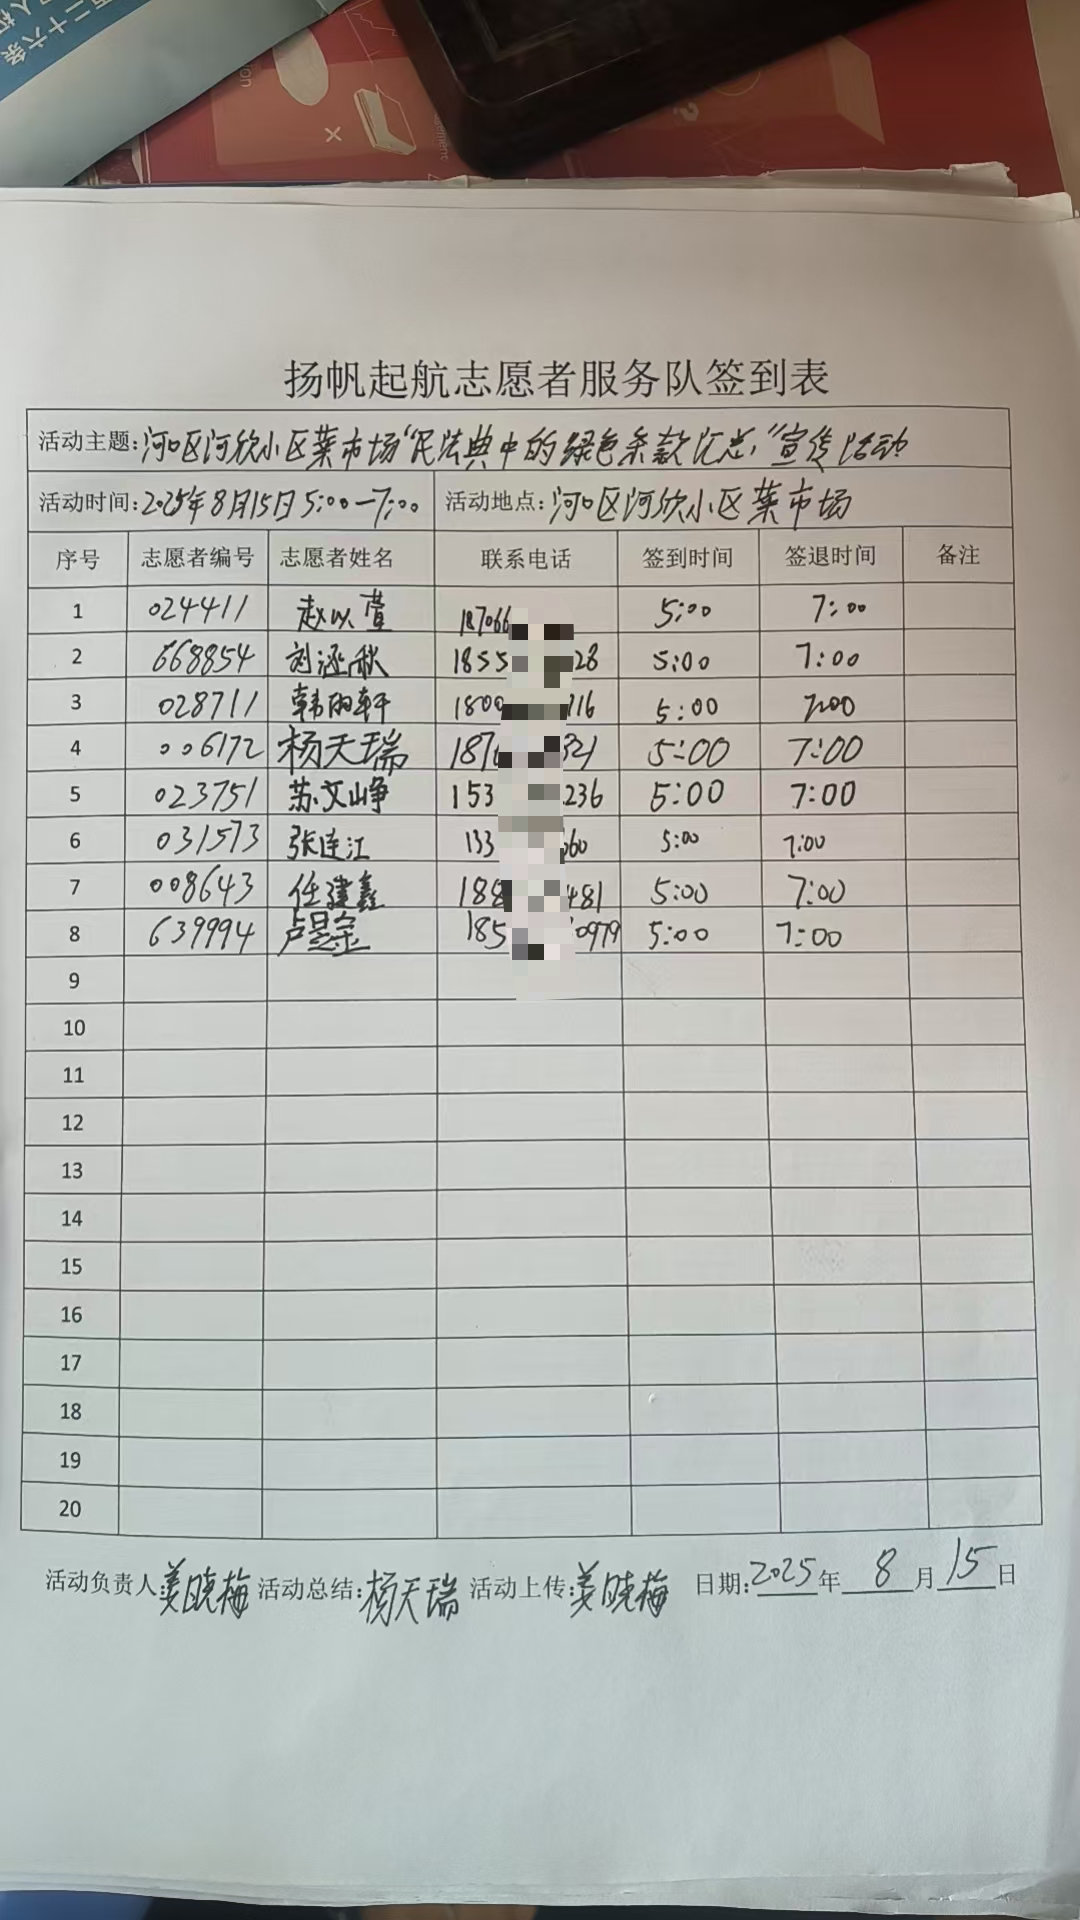 二十六条
扬帆起航志愿者服务队签到表
活动主题:河口区河欣小区菜市场“民法典中的绿色条款汇总”宣传活动
活动时间:2025年8月15日5:00—7:00 活动地点:河口区河欣小区菜市场
序号 志愿者编号 志愿者姓名 联系电话 签到时间 签退时间 备注
1 024411 赵以萱 187066 5:00 7:00
2 668854 刘涵秋 1855 28 5:00 7:00
3 028711 韩雨轩 1800 716 5:00 7:00
4 006172 杨天瑞 187 321 5:00 7:00
5 023751 苏文峥 153 236 5:00 7:00
6 031573 张连江 133 060 5:00 7:00
7 008643 任建鑫 188 481 5:00 7:00
8 639994 卢昱金 185 0979 5:00 7:00
9
10
11
12
13
14
15
16
17
18
19
20
活动负责人:姜晓梅 活动总结:杨天瑞 活动上传:姜晓梅 日期:2025年8月15日